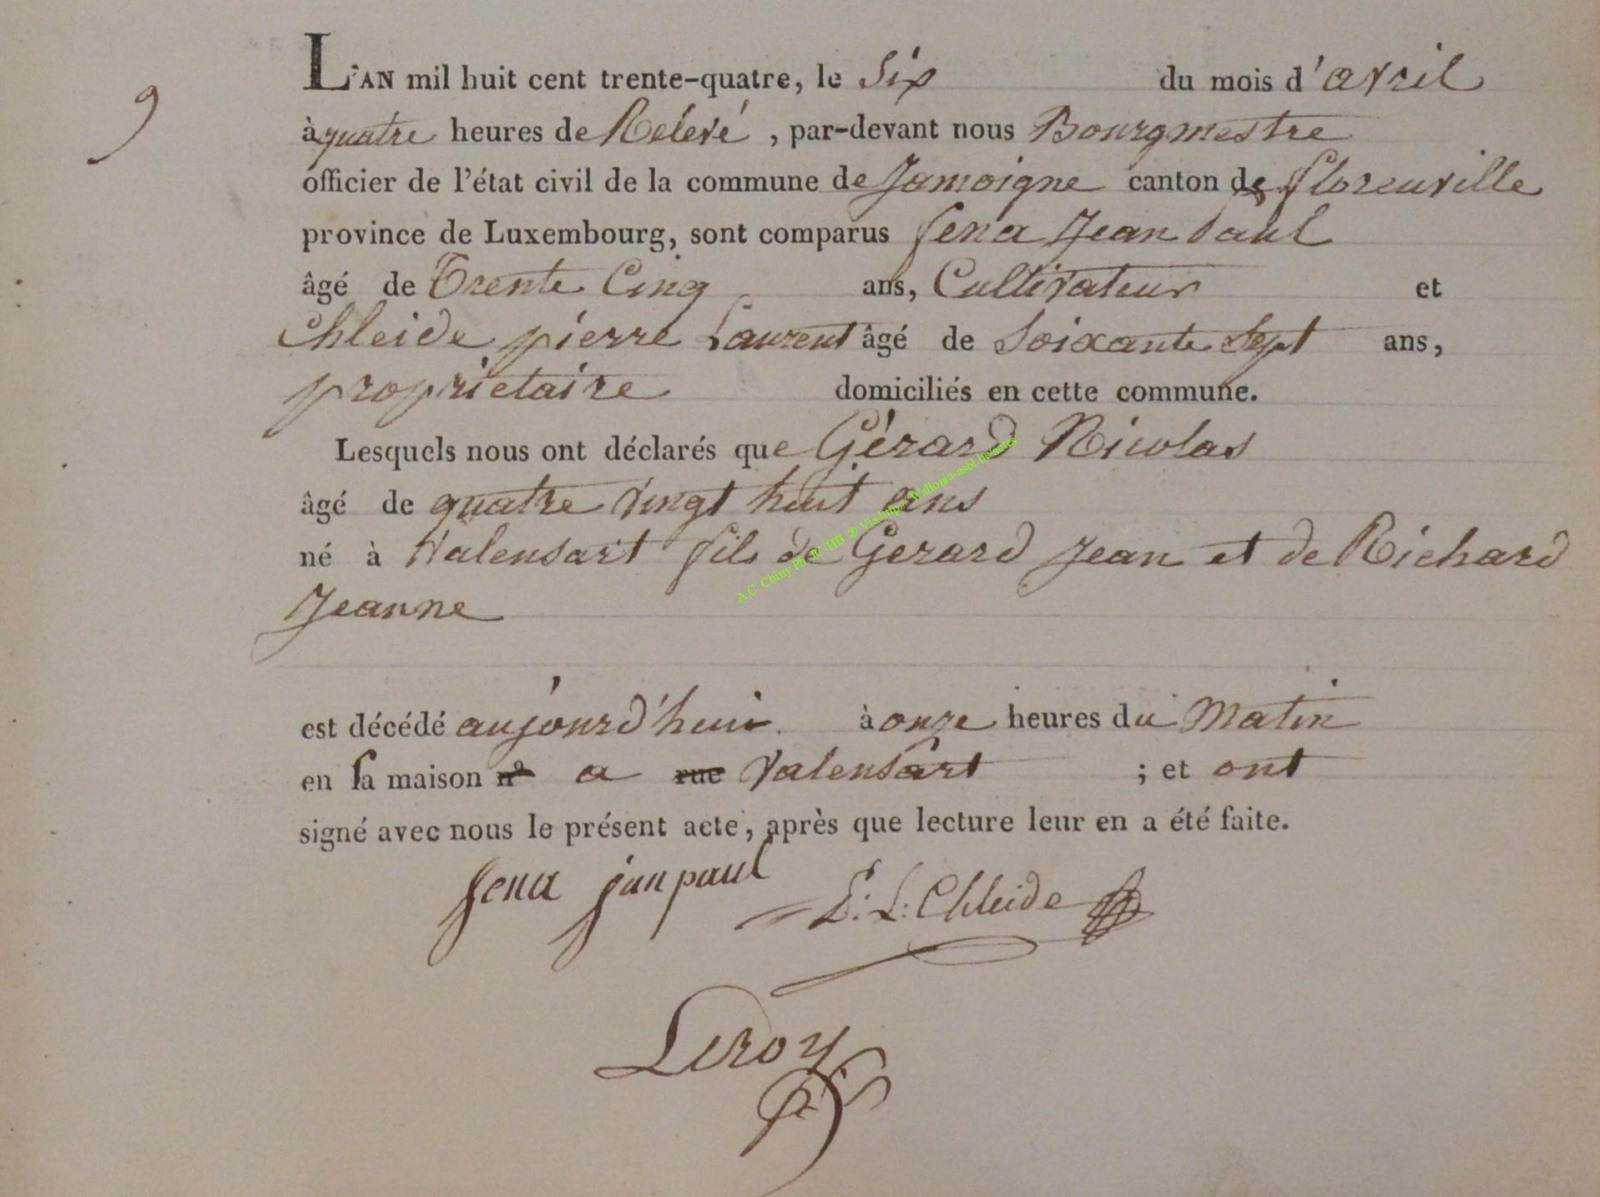 9
L'AN mil huit cent trente-quatre, le Six du mois d'avril
à quatre heures de Relevé, par-devant nous Bourgmestre
officier de l'état civil de la commune de Jamoigne canton de florenville
province de Luxembourg, sont comparus fena Jean Paul
âgé de Trente Cinq ans, Cultivateur et
Chleide pierre Laurent âgé de Soixante Sept ans,
propriétaire domiciliés en cette commune.
Lesquels nous ont déclarés que Gérard Nicolas
âgé de quatre vingt huit ans
né à Valensart fils de Gerard Jean et de Richard
Jeanne
est décédé aujourd'hui à onze heures du Matin
en sa maison n° a rue Valensart ; et ont
signé avec nous le présent acte, après que lecture leur en a été faite.
fena janpaul P: L: Chleide
Leroy